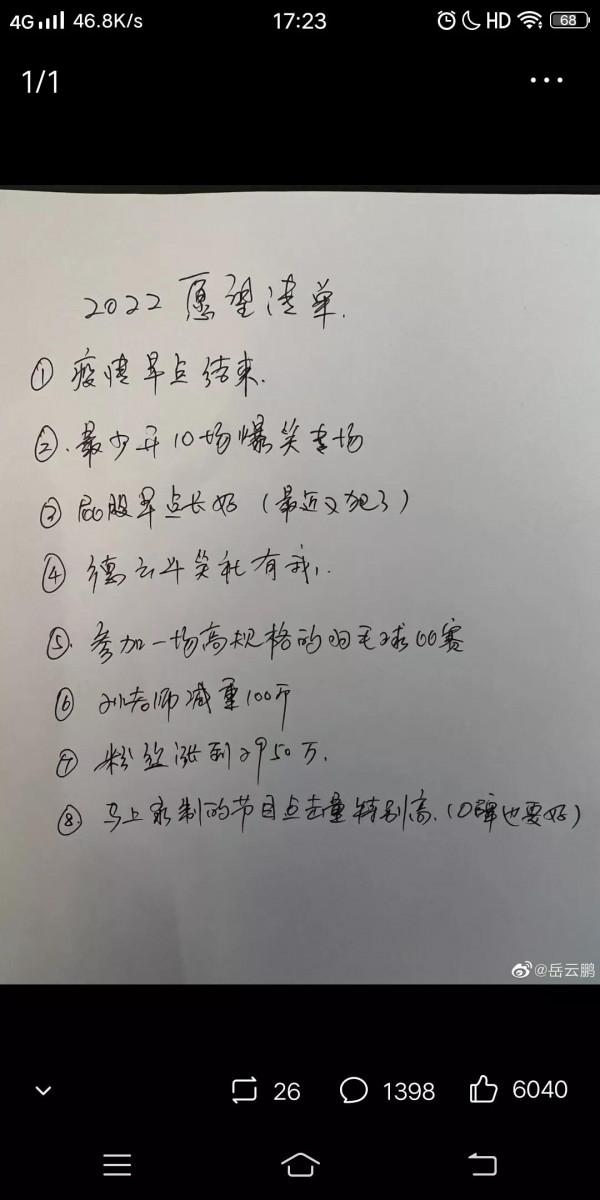 4G 46.8K/s 17:23 HD 68
1/1
2022愿望清单.
① 疫情早点结束.
②. 最少开10场爆笑专场
③ 屁股早点长好（最近又犯了）
④ 德云斗笑社有我.
⑤. 参加一场高规格的羽毛球比赛
⑥ 孙老师减重100斤
⑦ 粉丝涨到2950万.
⑧. 马上录制的节目点击量特别高.（口碑也要好）
@岳云鹏
26 1398 6040